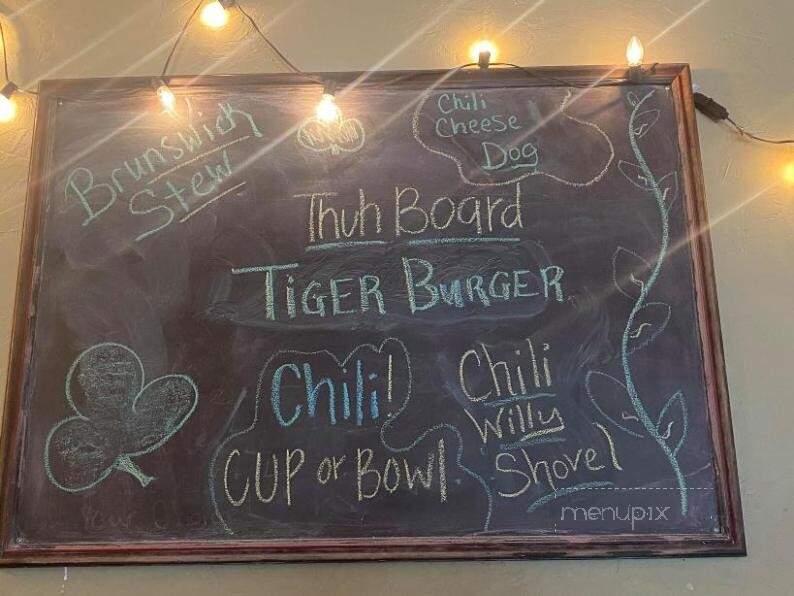 Brunswick
Stew
Chili
Cheese
Dog
Thuh Board
TIGER BURGER
Chili!
CUP or BOWL
Chili
Willy
Shovel
menupix